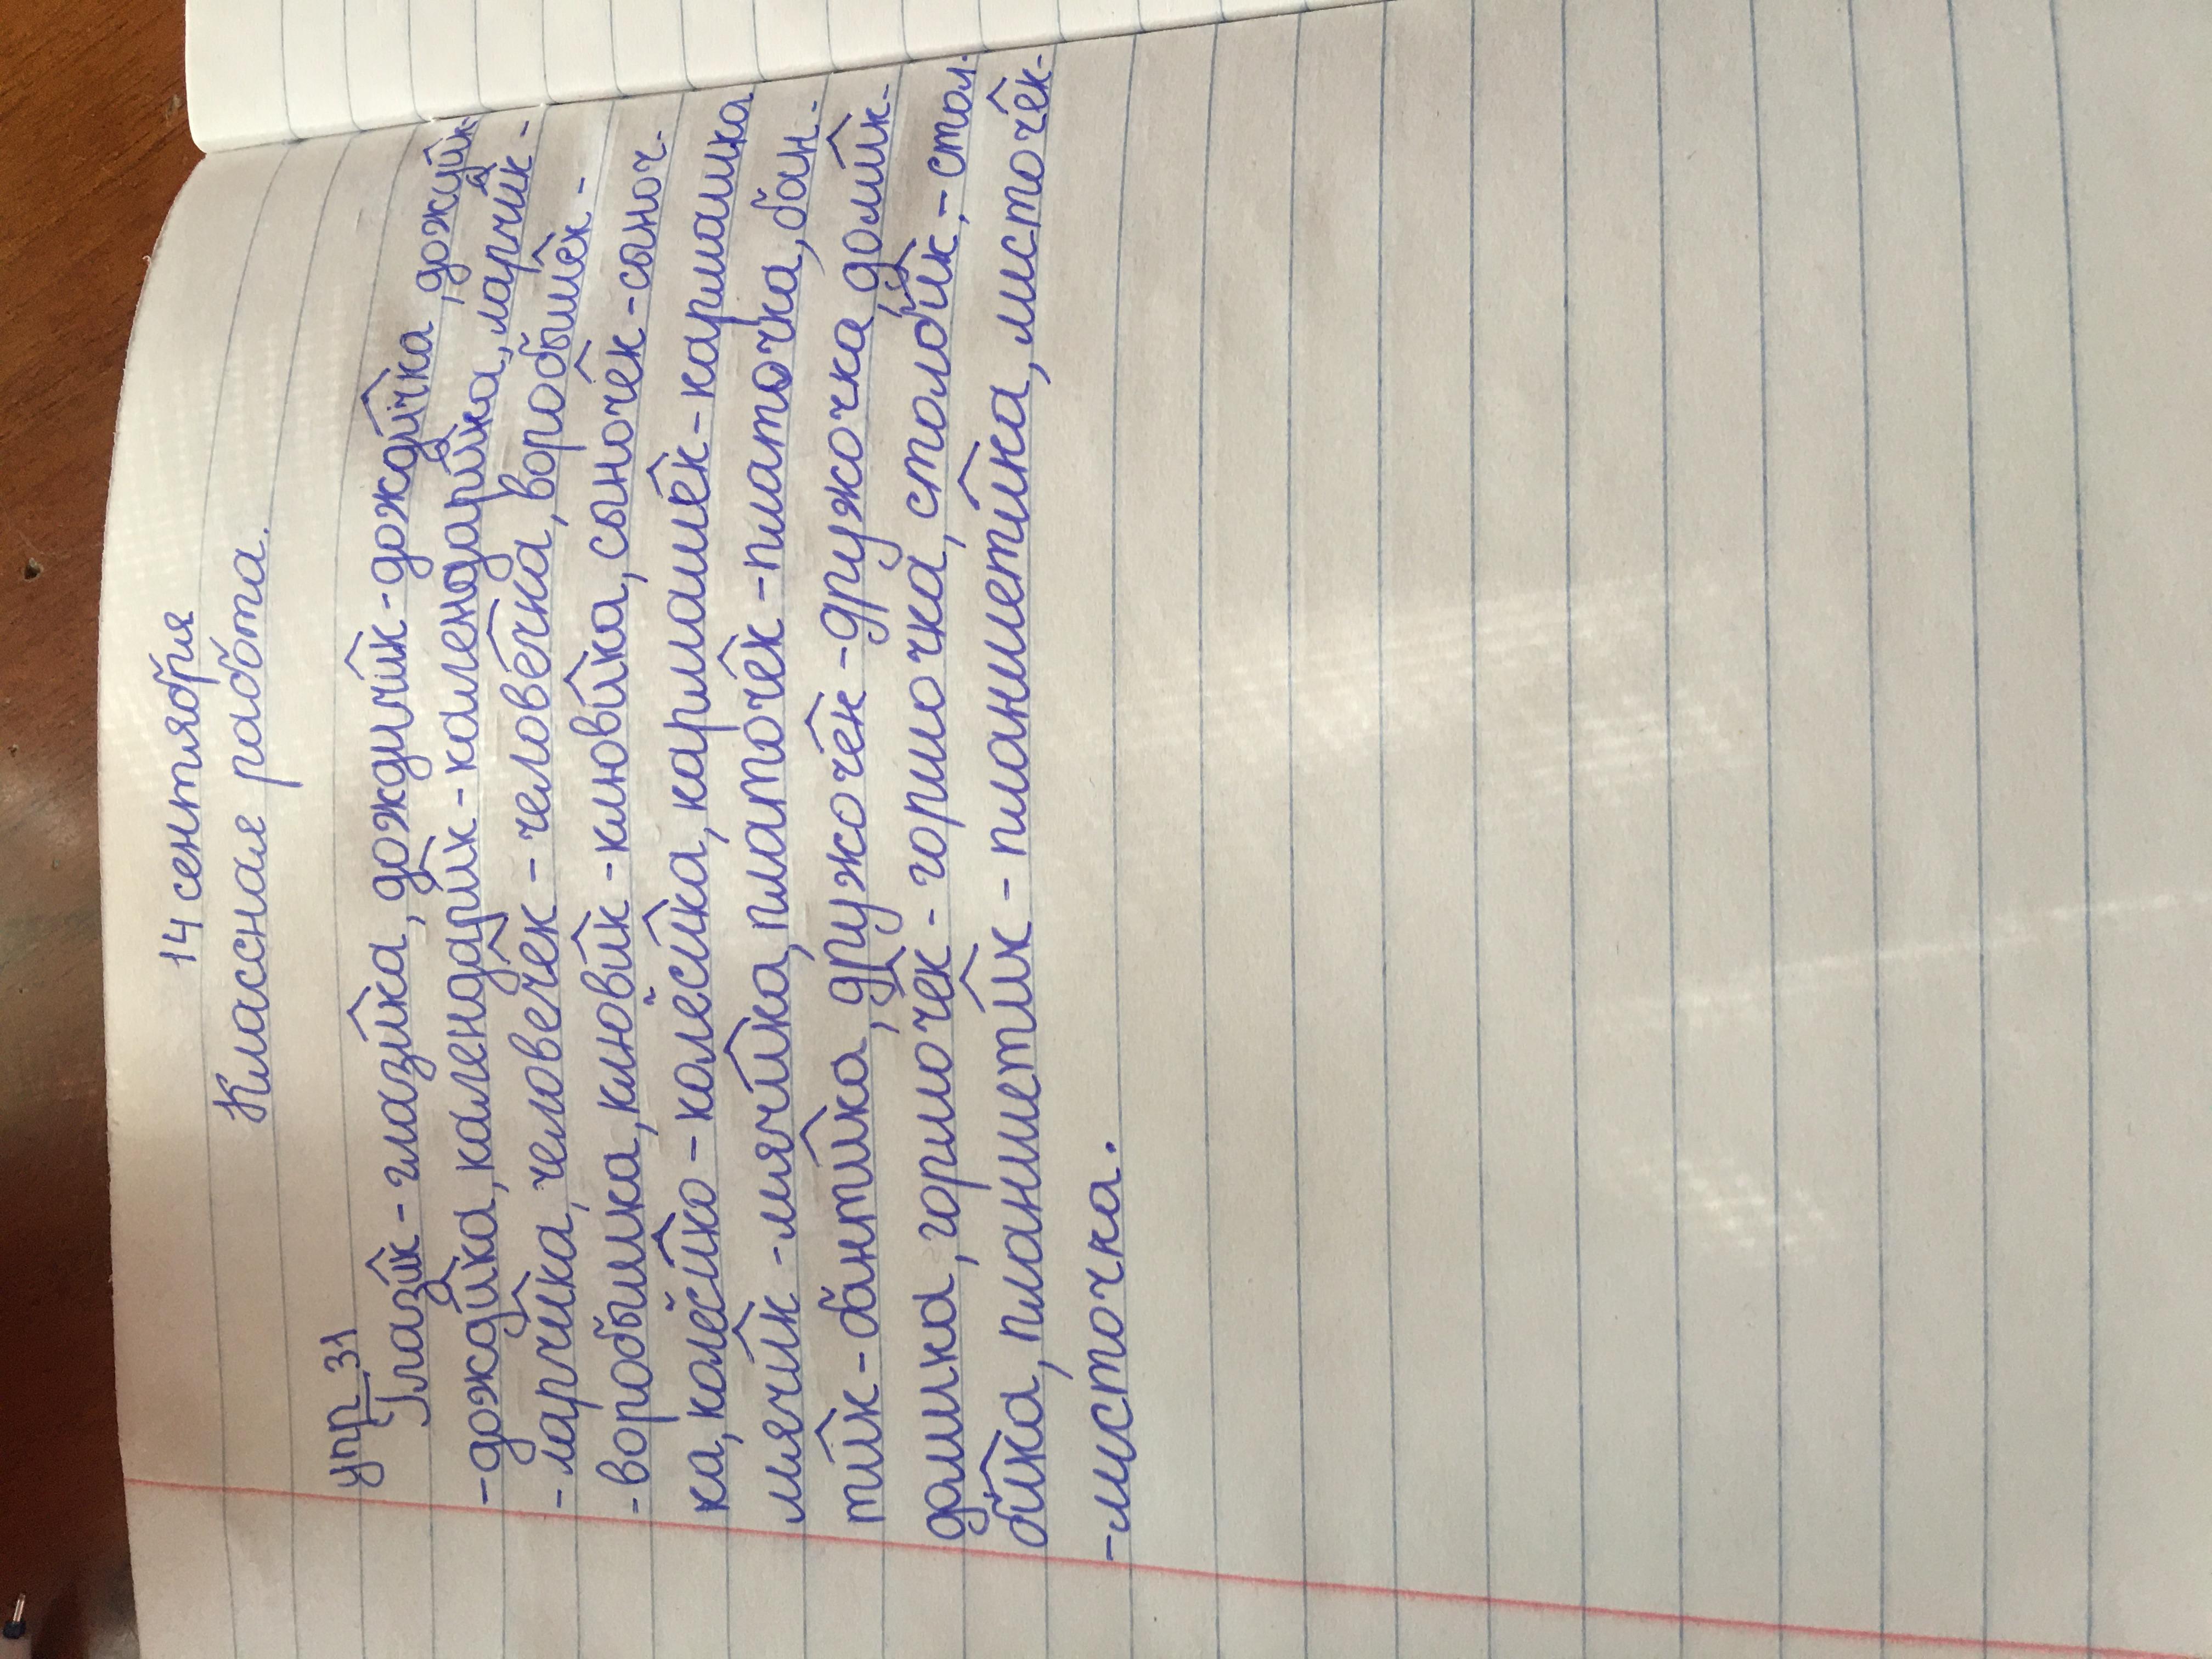 14 сентября
Классная работа.
упр 31
Глазик - глазика, дождичик - дождичка, дожик-
- дождика, календарик - календарика, ларчик -
- ларчика, человечек - человечка, воробышек -
- воробышка, клювик - клювика, сыночек - сыноч-
ка, колёсико - колёсика, кармашек - кармашка
мячик - мячика, платочек - платочка, бан-
тик - бантика, дружочек - дружочка, домик-
домика, горшочек - горшочка, столбик, - стол-
бика, планшетик - планшетика, листочек-
- листочка.